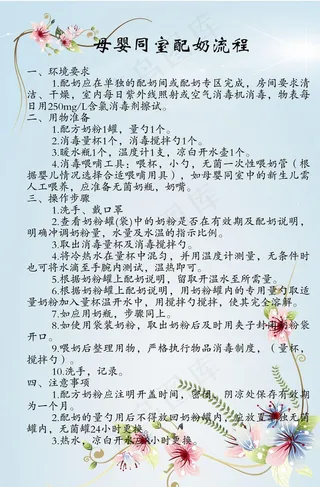 母婴同室配奶流程
一、环境要求
1.配奶应在单独的配奶间或配奶专区完成，房间要求清
洁、干燥，室内每日紫外线照射或空气消毒机消毒，物表每
日用250mg/L含氯消毒剂擦试。
二、用物准备
1.配方奶粉1罐，量勺1个。
2.消毒量杯1个，消毒搅拌勺1个。
3.暖水瓶1个，温度计1支，凉白开水壶1个。
4.消毒喂哺工具：喂杯，小勺，无菌一次性喂奶管（根
据婴儿情况选择合适喂哺用具），如母婴同室中的新生儿需
人工喂养，应准备无菌奶瓶，奶嘴。
三、操作步骤
1.洗手、戴口罩
2.查看奶粉罐(袋)中的奶粉是否在有效期及配奶说明，
明确冲调奶粉量，水量及水温的指示比例。
3.取出消毒量杯及消毒搅拌勺。
4.将冷热水在量杯中混匀，并用温度计测量，无条件时
也可将水滴至手腕内测试，温热即可。
5.根据奶粉罐上配奶说明，留取开温水至所需量。
6.根据奶粉罐上配奶说明，用奶粉罐内的专用量勺取适
量奶粉加入量杯温开水中，用搅拌勺搅拌，使其完全溶解。
7.如应用奶瓶，步骤同上。
8.如使用袋装奶粉，取出奶粉后及时用夹子封闭奶粉袋
开口。
9.喂奶后整理用物，严格执行物品消毒制度，（量杯，
搅拌勺）。
10.洗手，记录。
四、注意事项
1.配方奶粉应注明开盖时间，密闭、阴凉处保存有效期
为一个月。
2.配奶的量勺用后不得放回奶粉罐内，应放置于独无菌
罐内，无菌罐24小时更换。
3.热水，凉白开水 小时更换